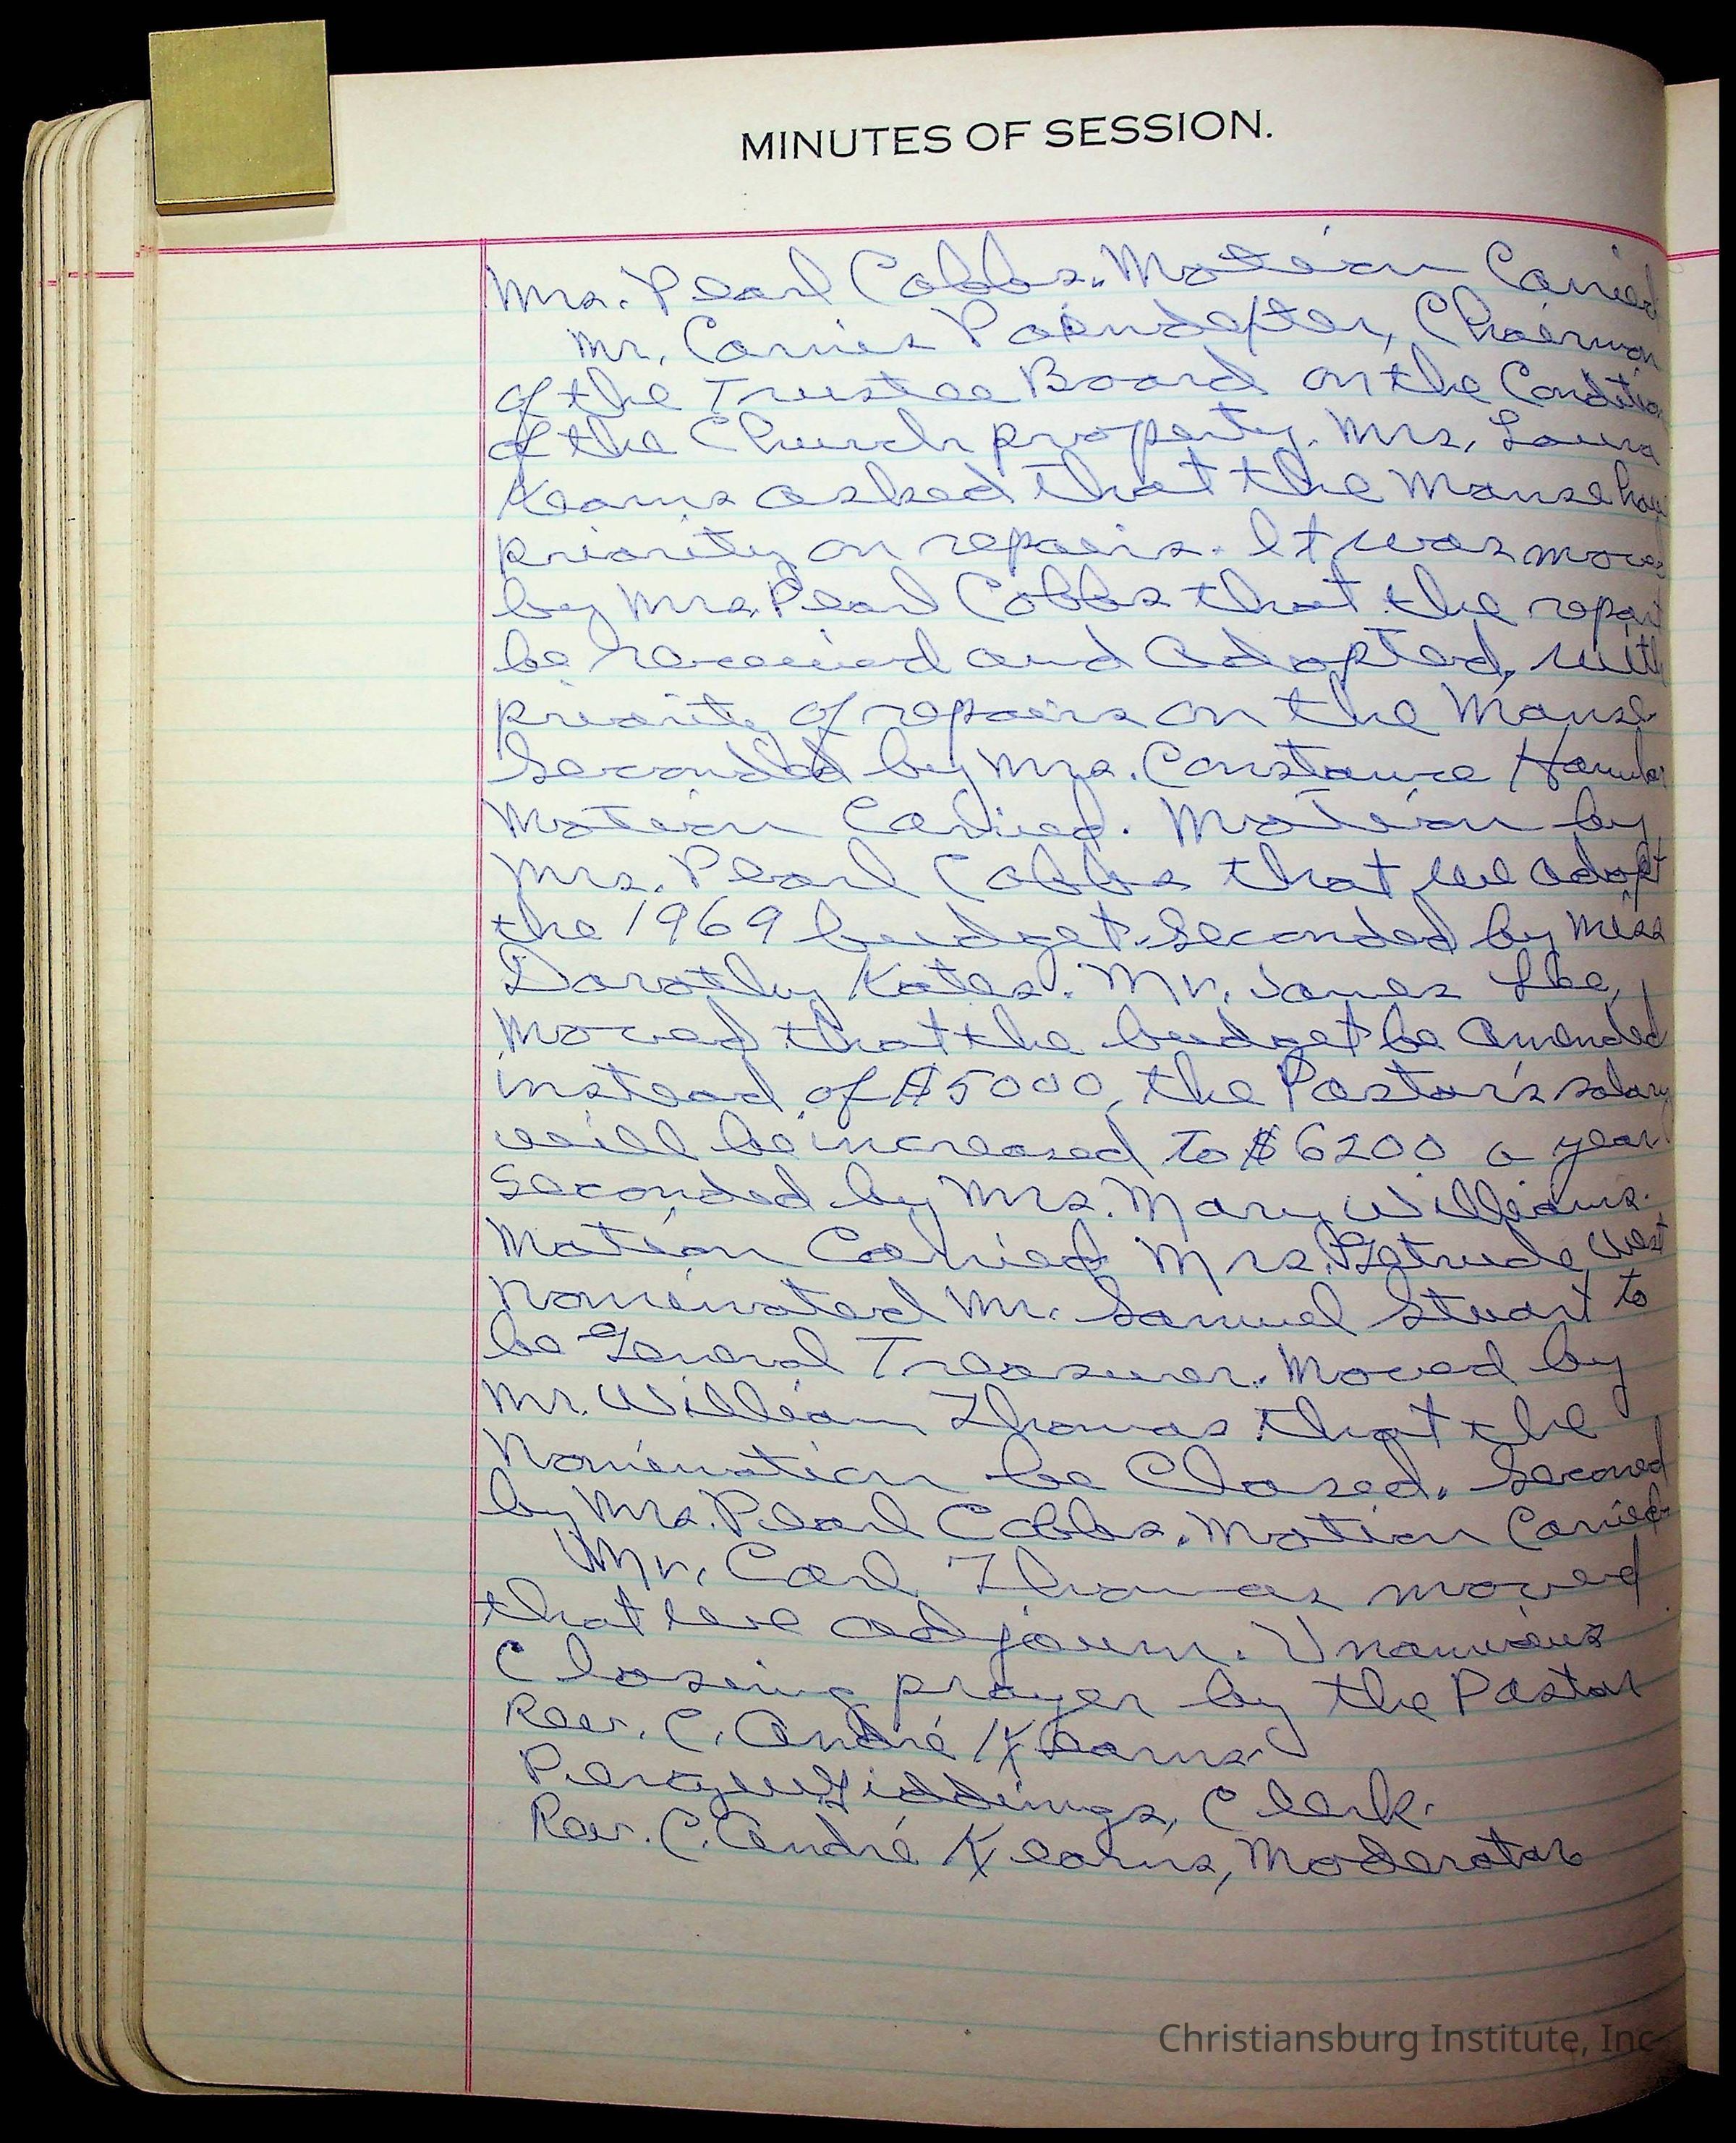 MINUTES OF SESSION.
Mrs. Pearl Cobbs. Motion Carried
Mr. Carnies Poindexter, Chairman
of the Trustee Board on the Condition
of the Church property. Mrs, Laura
Kearns asked that the Manse have
priority on repairs. It was moved
by Mrs. Pearl Cobbs that the report
be received and adopted, with
priority of repairs on the Manse.
Seconded by Mrs. Constance
Motion Carried. Motion by
Mrs. Pearl Cobbs that we adopt
the 1969 budget. Seconded by Miss
Dorothy Kates. Mr. James Lee,
moved that the budget be amended
instead of $5000, the Pastor's salary
will be increased to $6200 a year.
Seconded by Mrs. Mary Williams.
Motion Carried Mrs. Getrude West
Nominated Mr. Samuel Stuart to
be General Treasurer. Moved by
Mr. William Thomas that the
Nomination be Closed. Seconed
by Mrs. Pearl Cobbs. Motion Carried
Mr. Carl Thomas moved
that we adjourn. Unanious
Closing prayer by the Pastor
Rev. C. André Kearns.
Giddings, Clerk.
Rev. C. André Kearns, Moderator
Christiansburg Institute, Inc